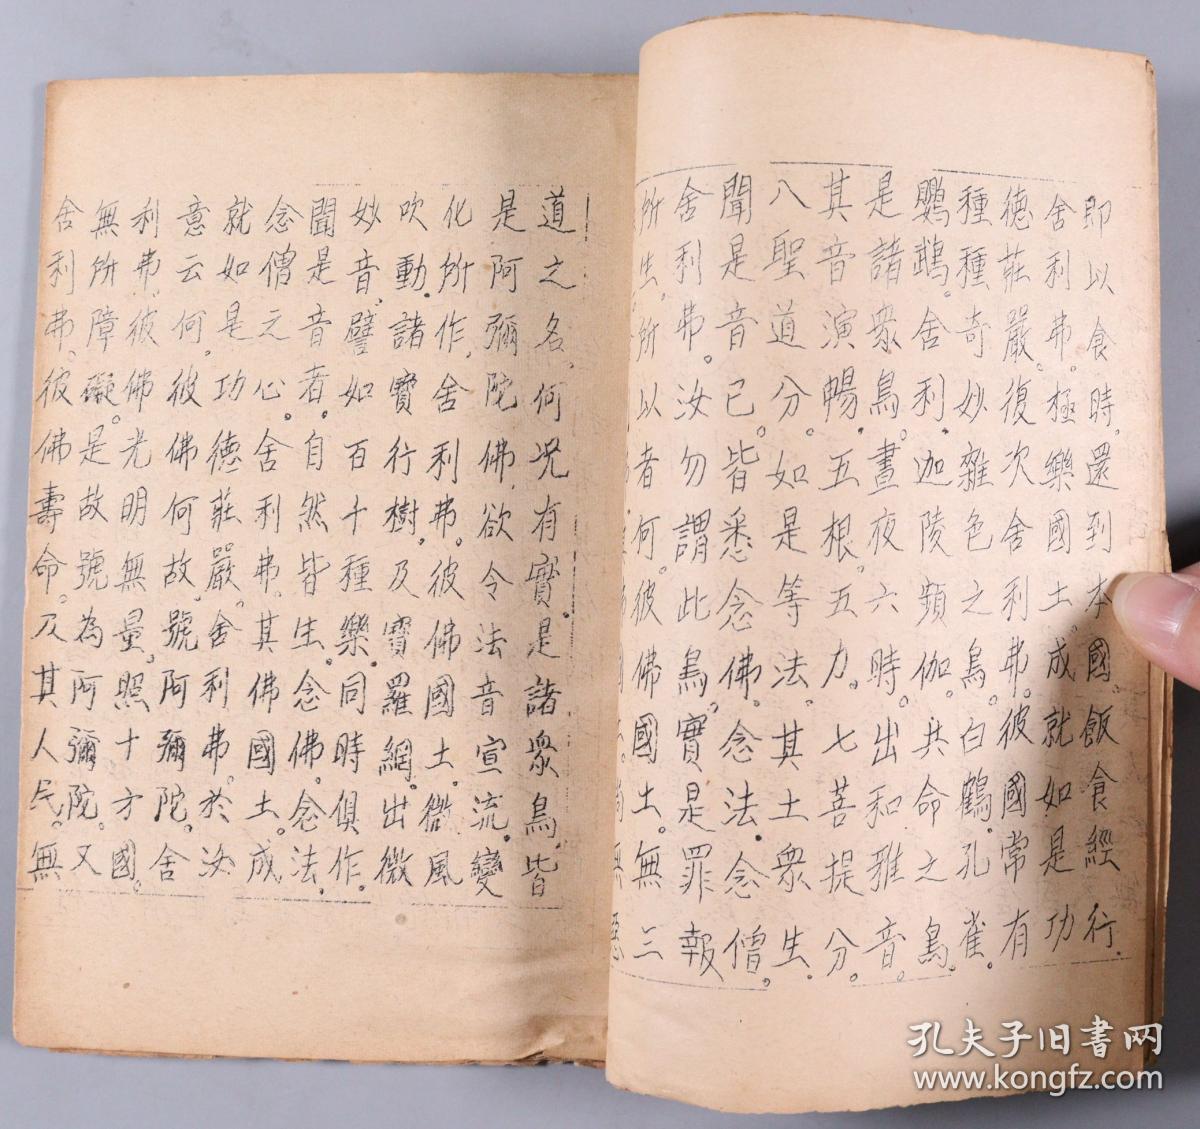 即以食時。還到本國。飯食經行。
舍利弗。極樂國土。成就如是功
德莊嚴。復次舍利弗。彼國常有
種種奇妙雜色之鳥。白鶴。孔雀。
鸚鵡。舍利。迦陵頻伽。共命之鳥。
是諸衆鳥。晝夜六時。出和雅音。
其音演暢。五根。五力。七菩提分。
八聖道分。如是等法。其土衆生。
聞是音已。皆悉念佛。念法。念僧。
舍利弗。汝勿謂此鳥。實是罪報
所生。所以者何。彼佛國土。無三
惡
道之名。何况有實。是諸衆鳥。皆
是阿彌陀佛。欲令法音宣流。變
化所作。舍利弗。彼佛國土。微風
吹動。諸寶行樹。及寶羅網。出微
妙音。譬如百千種樂。同時俱作。
聞是音者。自然皆生。念佛。念法。
念僧之心。舍利弗。其佛國土。成
就如是功德莊嚴。舍利弗。於汝
意云何。彼佛何故。號阿彌陀。舍
利弗。彼佛光明無量。照十方國。
無所障礙。是故號為阿彌陀。又
舍利弗。彼佛壽命。及其人民。無
孔夫子旧书网
www.kongfz.com